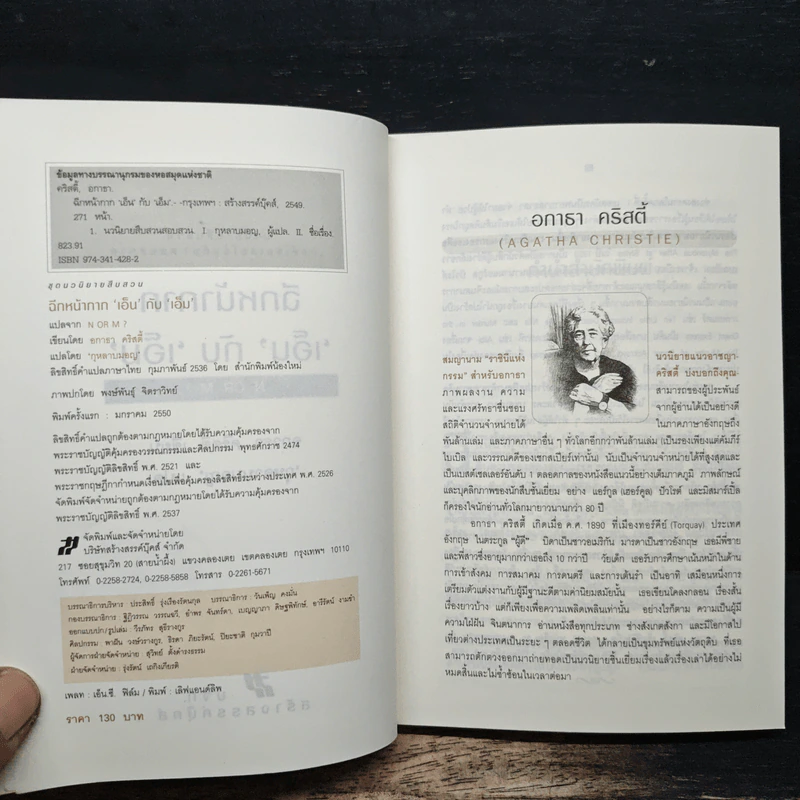 ข้อมูลทางบรรณานุกรมของหอสมุดแห่งชาติ
คริสตี้, อกาธา.
ฉีกหน้ากาก 'เอ็น' กับ 'เอ็ม'. - -กรุงเทพฯ : สร้างสรรค์บุ๊คส์, 2549.
271 หน้า.
1. นวนิยายสืบสวนสอบสวน. I. กุหลาบมอญ, ผู้แปล. II. ชื่อเรื่อง.
823.91
ISBN 974-341-428-2
ชุดนวนิยายสืบสวน
ฉีกหน้ากาก 'เอ็น' กับ 'เอ็ม'
แปลจาก N OR M ?
เขียนโดย อกาธา คริสตี้
แปลโดย "กุหลาบมอญ"
ลิขสิทธิ์คำแปลภาษาไทย กุมภาพันธ์ 2536 โดย สำนักพิมพ์น้องใหม่
ภาพปกโดย พงษ์พันธุ์ จิตราวิทย์
พิมพ์ครั้งแรก : มกราคม 2550
ลิขสิทธิ์คำแปลถูกต้องตามกฎหมายโดยได้รับความคุ้มครองจาก
พระราชบัญญัติคุ้มครองวรรณกรรมและศิลปกรรม พุทธศักราช 2474
พระราชบัญญัติลิขสิทธิ์ พ.ศ. 2521 และ
พระราชกฤษฎีกากำหนดเงื่อนไขเพื่อคุ้มครองลิขสิทธิ์ระหว่างประเทศ พ.ศ. 2526
จัดพิมพ์จำหน่ายถูกต้องตามกฎหมายโดยได้รับความคุ้มครองจาก
พระราชบัญญัติลิขสิทธิ์ พ.ศ. 2537
จัดพิมพ์และจัดจำหน่ายโดย
บริษัทสร้างสรรค์บุ๊คส์ จำกัด
217 ซอยสุขุมวิท 20 (สายน้ำผึ้ง) แขวงคลองเตย เขตคลองเตย กรุงเทพฯ 10110
โทรศัพท์ 0-2258-2724, 0-2258-5858 โทรสาร 0-2261-5671
บรรณาธิการบริหาร ประสิทธิ์ รุ่งเรืองรัตนกุล บรรณาธิการ : วันเพ็ญ คงมั่น
กองบรรณาธิการ : ฐิฏิวรรณ วรรณฉวี, อำพร จันทร์ดา, เบญญาภา ดิษฐพิทักษ์, อารีรัตน์ งามขำ
ออกแบบปก/รูปเล่ม วีรภัทร สุธีรางกูร
ศิลปกรรม : พาฝัน วงษ์วรางกูร, ธิรดา ภิยะรัตน์, ปิยะชาติ กุมวาปี
ผู้จัดการฝ่ายจัดจำหน่าย : สุวิทย์ ตั้งดำรงธรรม
ฝ่ายจัดจำหน่าย : รุ่งรัตน์ เถกิงเกียรติ
เพลท : เอ็น.ซี. ฟิล์ม / พิมพ์ : เลิฟแอนด์ลิพ
ราคา 130 บาท
อกาธา คริสตี้
(AGATHA CHRISTIE)
สมญานาม "ราชินีแห่ง นวนิยายแนวอาชญา-
กรรม" สำหรับอกาธา คริสตี้ บ่งบอกถึงคุณ-
ภาพผลงาน ความ สามารถของผู้ประพันธ์
และแรงศรัทธาชื่นชอบ จากผู้อ่านได้เป็นอย่างดี
สถิติจำนวนจำหน่ายได้ ในภาคภาษาอังกฤษถึง
พันล้านเล่ม และภาคภาษาอื่น ๆ ทั่วโลกอีกกว่าพันล้านเล่ม (เป็นรองเพียงแต่คัมภีร์
ไบเบิล และวรรณคดีของเชกสเปียร์เท่านั้น) นับเป็นจำนวนจำหน่ายได้ที่สูงสุดและ
เป็นเบสต์เซลเลอร์อันดับ 1 ตลอดกาลของหนังสือแนวนี้อย่างเต็มภาคภูมิ ภาพลักษณ์
และบุคลิกภาพของนักสืบชั้นเยี่ยม อย่าง แอร์กูล (เฮอร์คูล) ปัวโรต์ และมิสมาร์เปิ้ล
ก็ครองใจนักอ่านทั่วโลกมายาวนานกว่า 80 ปี
อกาธา คริสตี้ เกิดเมื่อ ค.ศ. 1890 ที่เมืองทอร์คีย์ (Torquay) ประเทศ
อังกฤษ ในตระกูล "ผู้ดี" บิดาเป็นชาวอเมริกัน มารดาเป็นชาวอังกฤษ เธอมีพี่ชาย
และพี่สาวซึ่งอายุมากกว่าเธอถึง 10 กว่าปี วัยเด็ก เธอรับการศึกษาเน้นหนักในด้าน
การเข้าสังคม การสมาคม การดนตรี และการเต้นรำ เป็นอาทิ เสมือนหนึ่งการ
เตรียมตัวแต่งงานกับผู้มีฐานะดีตามค่านิยมสมัยนั้น เธอเขียนโคลงกลอน เรื่องสั้น
เรื่องยาวบ้าง แต่ก็เพียงเพื่อความเพลิดเพลินเท่านั้น อย่างไรก็ตาม ความเป็นผู้มี
ความใฝ่ฝัน จินตนาการ อ่านหนังสือทุกประเภท ช่างสังเกตสังกา และมีโอกาสไป
เที่ยวต่างประเทศเป็นระยะ ๆ ตลอดชีวิต ได้กลายเป็นขุมทรัพย์แห่งวัตถุดิบ ที่เธอ
สามารถตักตวงออกมาถ่ายทอดเป็นนวนิยายชิ้นเยี่ยมเรื่องแล้วเรื่องเล่าได้อย่างไม่
หมดสิ้นและไม่ซ้ำซ้อนในเวลาต่อมา